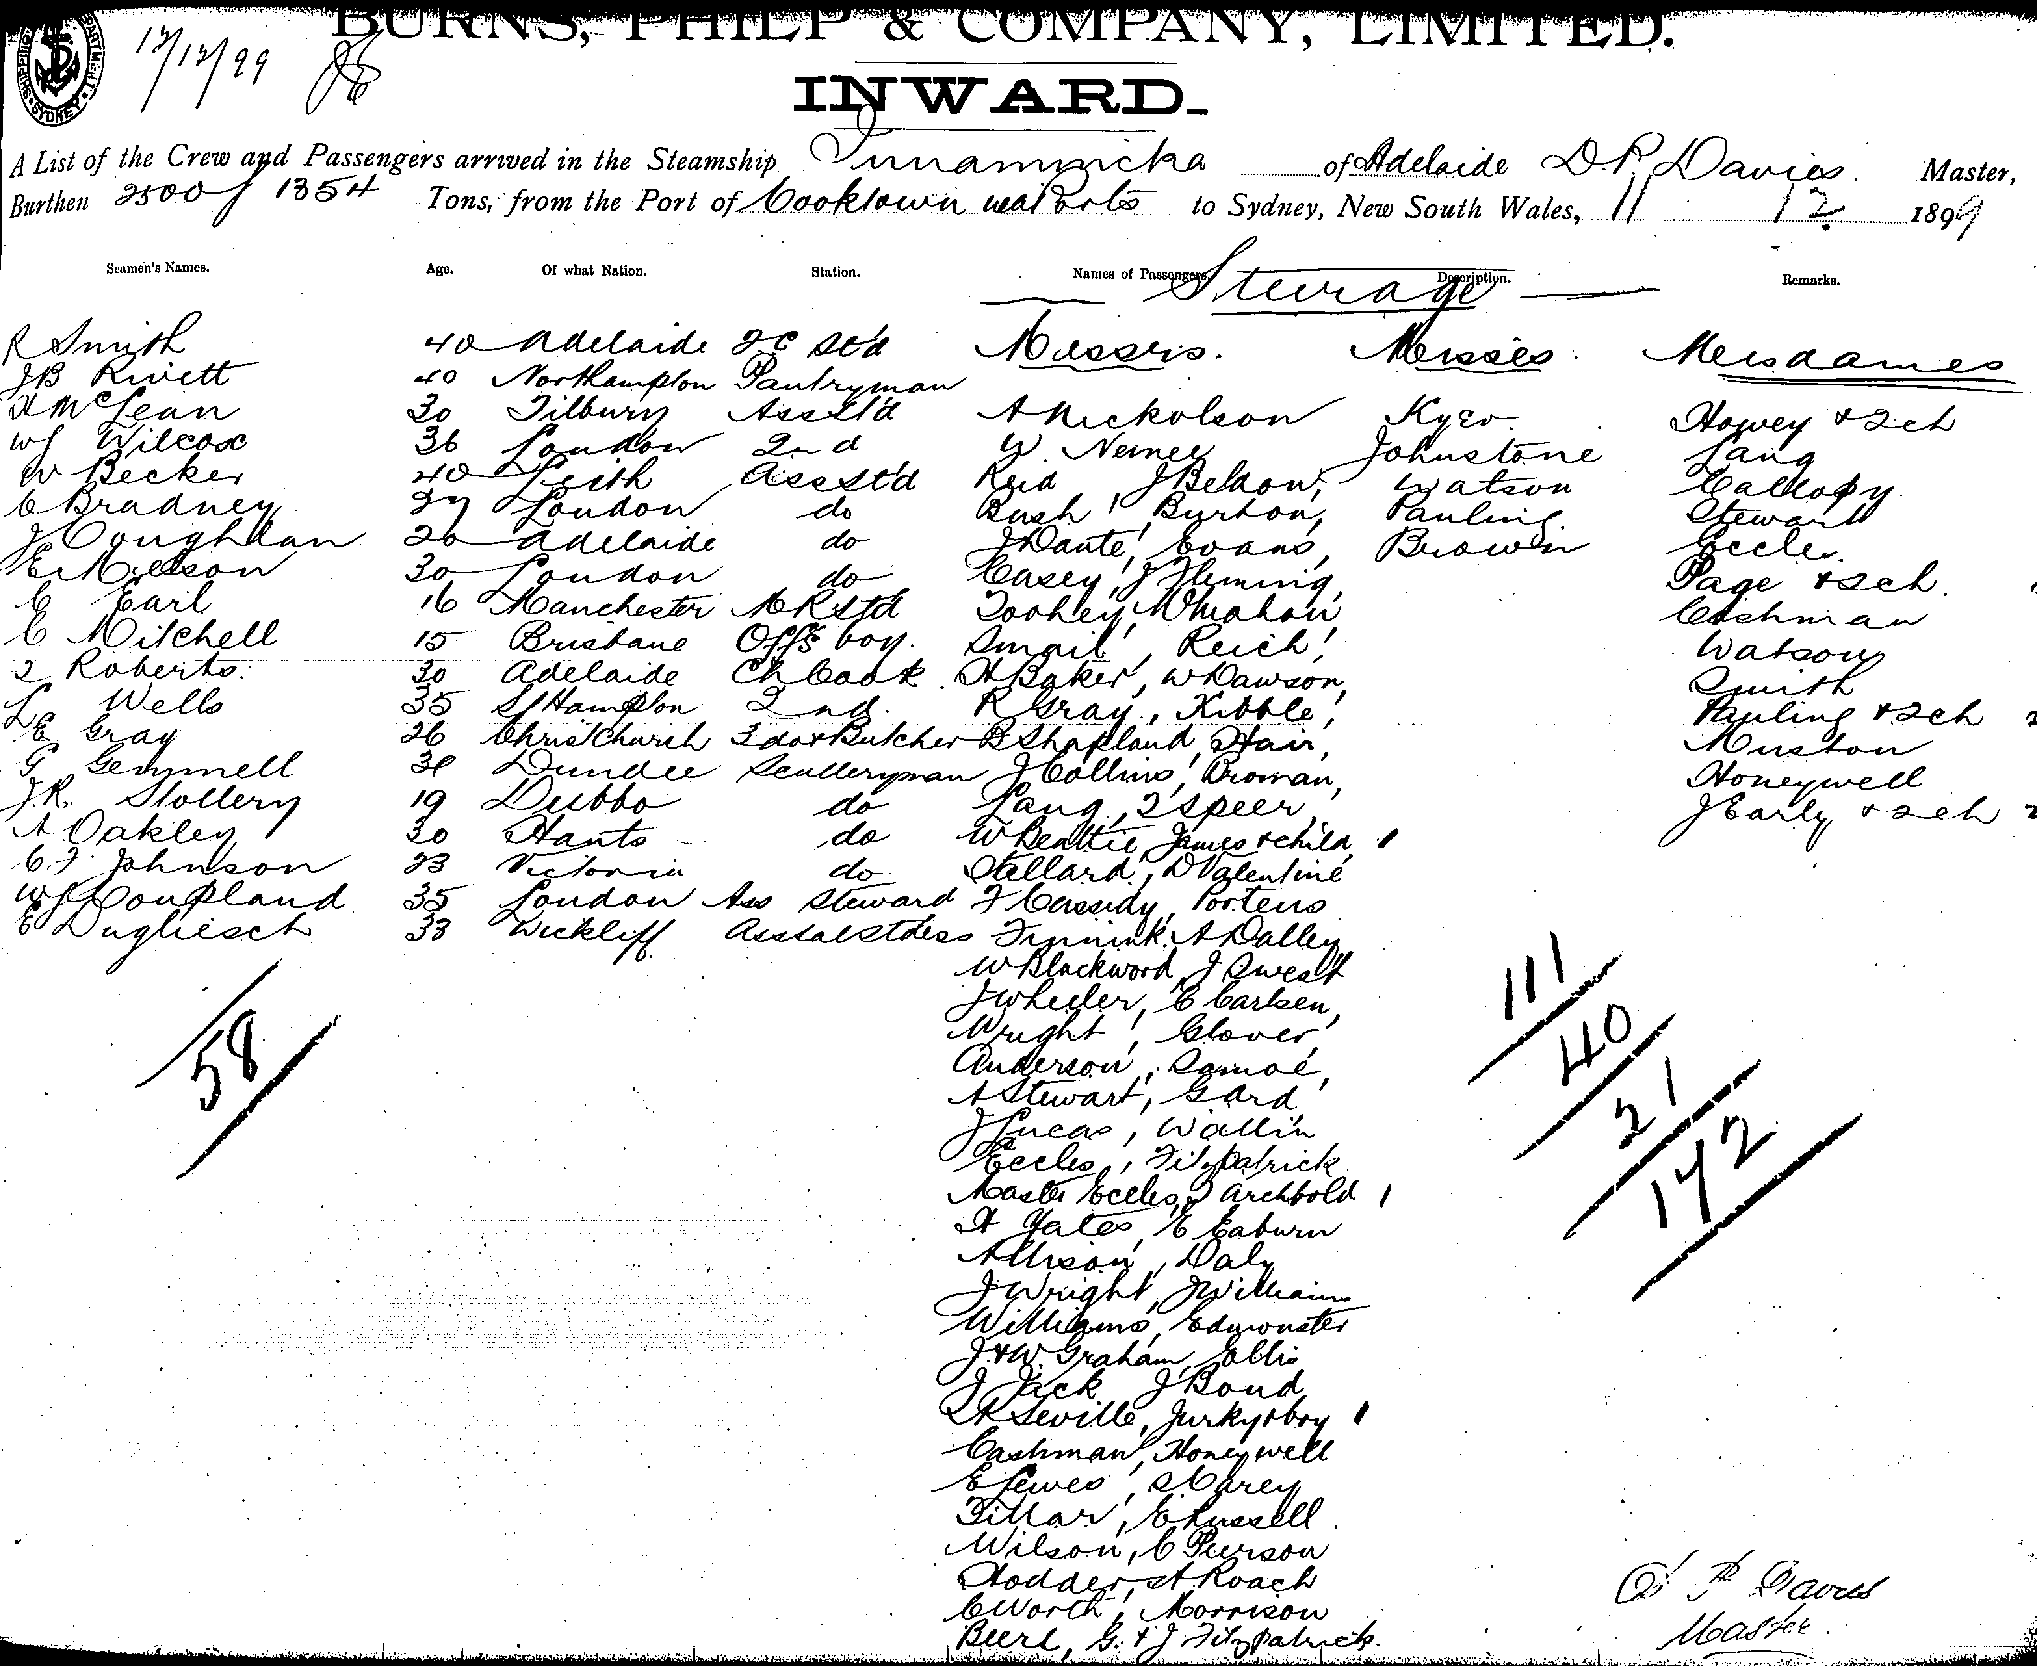 BURNS, PHILP & COMPANY, LIMITED.
12/12/99
INWARD.
A List of the Crew and Passengers arrived in the Steamship Innamincka of Adelaide D. P. Davies. Master,
Burthen 2500 / 1354 Tons, from the Port of Cooktown via Ports to Sydney, New South Wales, 11 12 1899
Seamen's Names. Age. Of what Nation. Station. Names of Passengers. Description. Remarks.
Steerage
R Smith 40 Adelaide 2C Std Messrs. Misses Mesdames
JB Rivett 40 Northampton Pantryman
H McLean 30 Tilbury Ass Std A Nickolson Kyeo Howey + 2 ch
WJ Wilcox 36 London 2nd W. Nemee Johnstone Lang
W Becker 40 Leith Ass Std Reid, J Beldon, Watson Callopy
C Bradney 27 London do Bush, Burton, Pauling Stewart
J Coughlan 20 Adelaide do J Dante, Evans, Brown Eccles
E Nielson 30 London do Casey, J Fleming, Page + 2 ch.
C Earl 16 Manchester M R Std Toohey, W Mahon, Cashman
C Mitchell 15 Brisbane Offs boy. Smail, Reich, Watson
J Roberts 30 Adelaide Ch Cook H Baker, W Dawson, Smith
L Wells 35 S/Hampton 2nd. R Gray, Kibble, Pauling + 2 ch
E Gray 26 Christchurch 3 do + Butcher B Shapland, Hair, Muston
G Gemmell 30 Dundee Sculleryman J Collins, Broman, Honeywell
J.R. Slollery 19 Dubbo do Lang, J Speer, J Early + 2 ch
A Oakley 30 Hants do W Beattie, James + child,
C.F. Johnson 23 Victoria do Stellard, D Valentine
WJ Coupland 35 London Ass Steward F Cassidy, Porteus
E Dugliesch 33 Wickliff Ass Sal Stdess Finnink, A Dalley
W Blackwood, J Sweatt
J Wheeler, C Carlsen,
Wright, Glover,
Anderson, Samoe,
A Stewart, Gard,
J Lucas, Wallin
Eccles, Fitzpatrick
Master Eccles, J Archbold
H Yates, E Eaburn
Allison, Daly
J Wright, J Williams
Williams, Edmonster
J. + W. Graham, Ellis
J Jack, J Bond
Seville, Jurky + boy
Cashman, Honeywell
E Lewes, S Carey
Tillar, E Russell
Wilson, C Pierson
Hodder, A Roach
C Worth, Morrison
Beere, G. + J Fitzpatrick.
58
111
40
21
172
D P Davies
Master